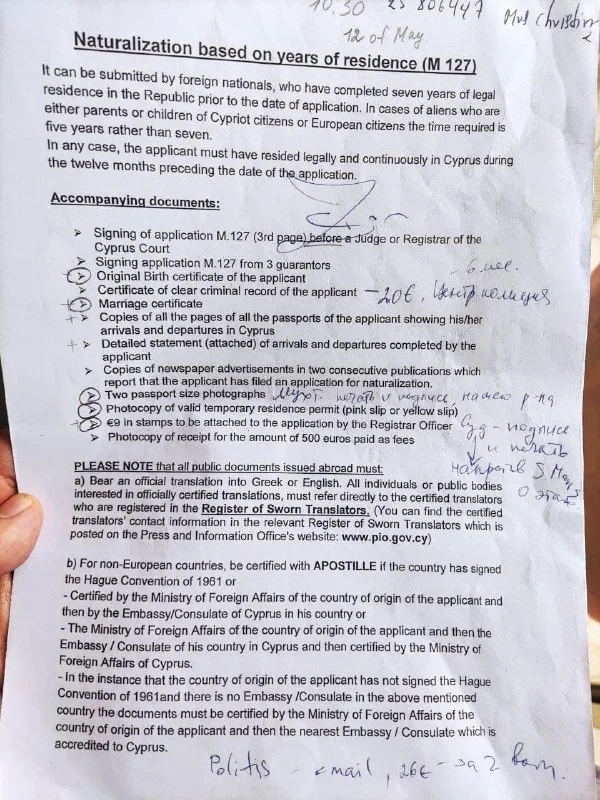 10.30 25 806447 Mrs Christin
12 of May
Naturalization based on years of residence (M 127)
It can be submitted by foreign nationals, who have completed seven years of legal
residence in the Republic prior to the date of application. In cases of aliens who are
either parents or children of Cypriot citizens or European citizens the time required is
five years rather than seven.
In any case, the applicant must have resided legally and continuously in Cyprus during
the twelve months preceding the date of the application.
Accompanying documents:
➤ Signing of application M.127 (3rd page) before a Judge or Registrar of the
Cyprus Court
➤ Signing application M.127 from 3 guarantors
➤ Original Birth certificate of the applicant
- 6 мес.
➤ Certificate of clear criminal record of the applicant – 20€, Центр полиция
➤ Marriage certificate
+ ➤ Copies of all the pages of all the passports of the applicant showing his/her
arrivals and departures in Cyprus
+ ➤ Detailed statement (attached) of arrivals and departures completed by the
applicant
➤ Copies of newspaper advertisements in two consecutive publications which
report that the applicant has filed an application for naturalization.
➤ Two passport size photographs Мухт. печать и подпись, нашего р-на
➤ Photocopy of valid temporary residence permit (pink slip or yellow slip)
➤ €9 in stamps to be attached to the application by the Registrar Officer Суд - подпись
и печать
➤ Photocopy of receipt for the amount of 500 euros paid as fees
напротив S. Mays
0 этаж
PLEASE NOTE that all public documents issued abroad must:
a) Bear an official translation into Greek or English. All individuals or public bodies
interested in officially certified translations, must refer directly to the certified translators
who are registered in the Register of Sworn Translators. (You can find the certified
translators' contact information in the relevant Register of Sworn Translators which is
posted on the Press and Information Office's website: www.pio.gov.cy)
b) For non-European countries, be certified with APOSTILLE if the country has signed
the Hague Convention of 1961 or
- Certified by the Ministry of Foreign Affairs of the country of origin of the applicant and
then by the Embassy/Consulate of Cyprus in his country or
- The Ministry of Foreign Affairs of the country of origin of the applicant and then the
Embassy / Consulate of his country in Cyprus and then certified by the Ministry of
Foreign Affairs of Cyprus.
- In the instance that the country of origin of the applicant has not signed the Hague
Convention of 1961and there is no Embassy /Consulate in the above mentioned
country the documents must be certified by the Ministry of Foreign Affairs of the
country of origin of the applicant and then the nearest Embassy / Consulate which is
accredited to Cyprus.
Politis - email, 26€ - за 2